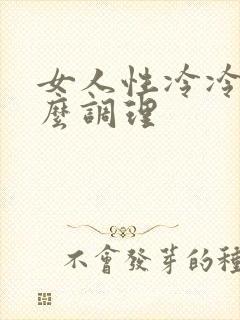 女人性冷冷
麼調理
不會發芽的種